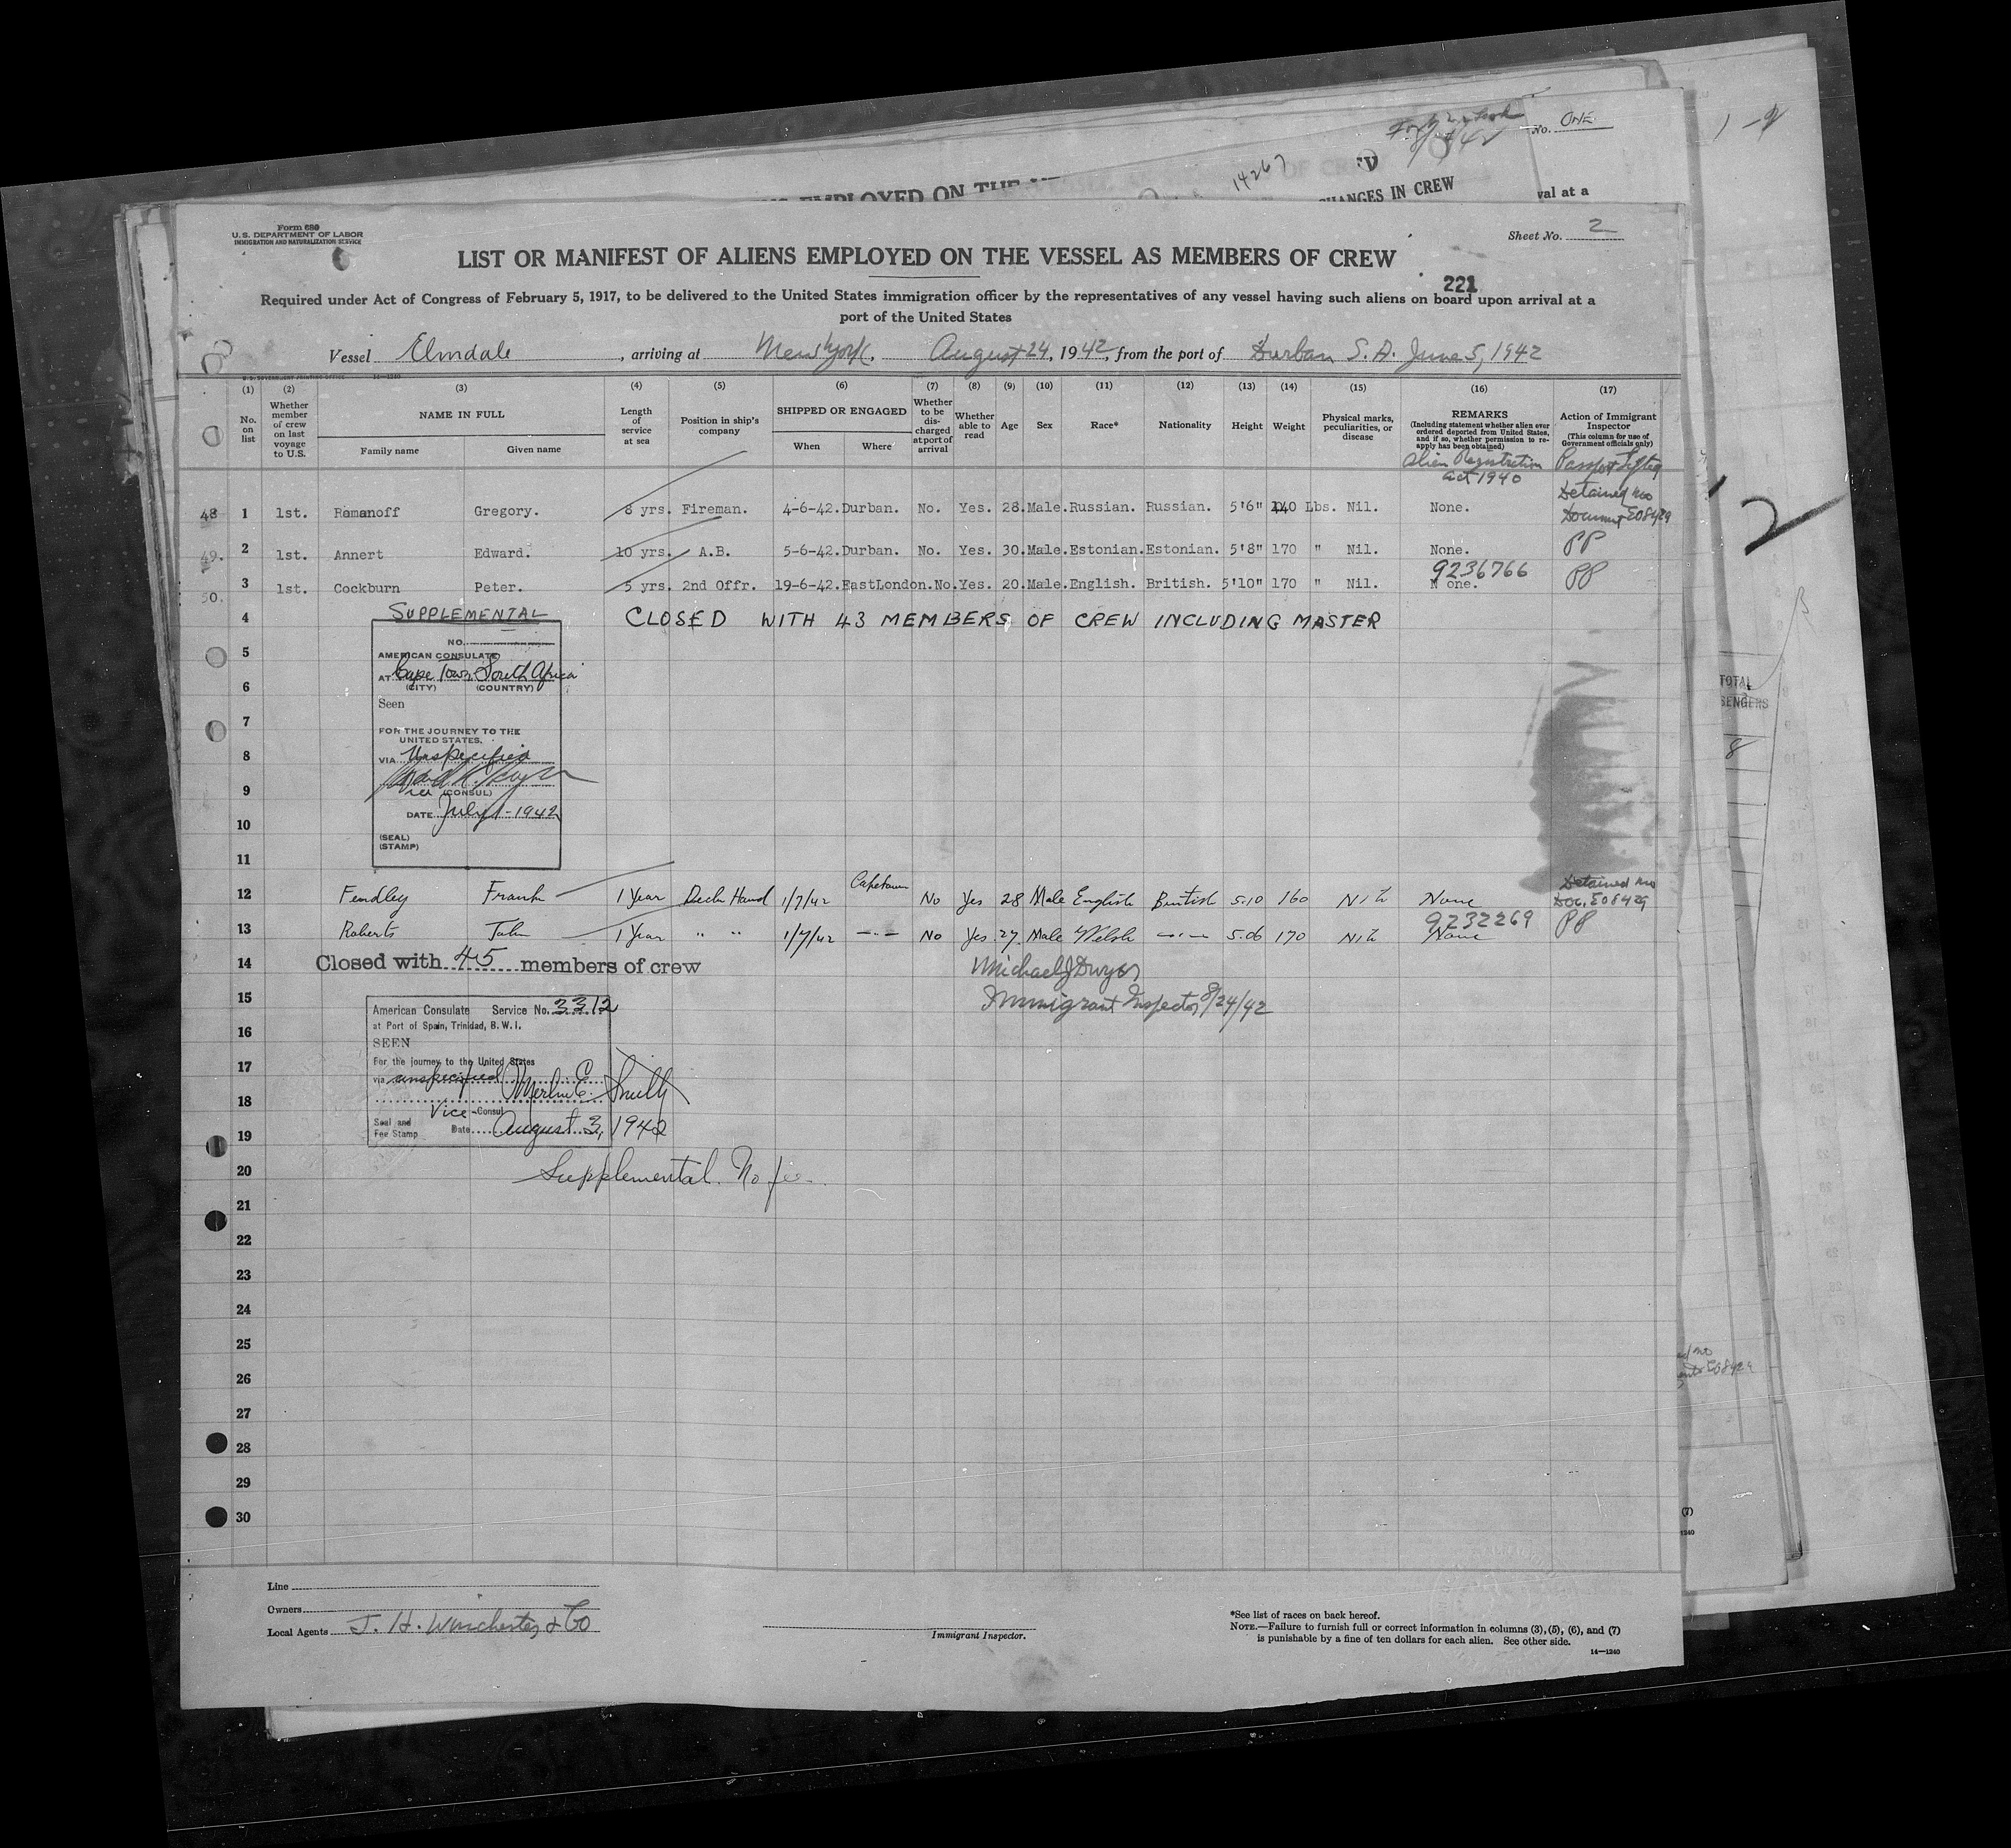 No. ONE
1-2
14267
CHANGES IN CREW
val at a
Form 680
U.S. DEPARTMENT OF LABOR
IMMIGRATION AND NATURALIZATION SERVICE
Sheet No. 2
LIST OR MANIFEST OF ALIENS EMPLOYED ON THE VESSEL AS MEMBERS OF CREW
221
Required under Act of Congress of February 5, 1917, to be delivered to the United States immigration officer by the representatives of any vessel having such aliens on board upon arrival at a
port of the United States
Vessel Elmdale, arriving at New York, August 24, 1942, from the port of Durban S.A. June 5, 1942
(1) (2) (3) (4) (5) (6) (7) (8) (9) (10) (11) (12) (13) (14) (15) (16) (17)
No. on list
Whether member of crew on last voyage to U.S.
NAME IN FULL
Family name Given name
Length of service at sea
Position in ship's company
SHIPPED OR ENGAGED
When Where
Whether to be discharged at port of arrival
Whether able to read
Age Sex Race* Nationality Height Weight
Physical marks, peculiarities, or disease
REMARKS
(Including statement whether alien ever ordered deported from United States, and if so, whether permission to reapply has been obtained)
Action of Immigrant Inspector
(This column for use of Government officials only)
Alien Registration
Act 1940
48 1 1st. Romanoff Gregory. 8 yrs. Fireman. 4-6-42. Durban. No. Yes. 28. Male. Russian. Russian. 5'6" 140 Lbs. Nil. None. Detained no Document E08429
49. 2 1st. Annert Edward. 10 yrs. A.B. 5-6-42. Durban. No. Yes. 30. Male. Estonian. Estonian. 5'8" 170 " Nil. None. PP
50. 3 1st. Cockburn Peter. 5 yrs. 2nd Offr. 19-6-42. EastLondon. No. Yes. 20. Male. English. British. 5'10" 170 " Nil. 9236766 None. PP
4 SUPPLEMENTAL CLOSED WITH 43 MEMBERS OF CREW INCLUDING MASTER
NO.
5 AMERICAN CONSULATE
AT Cape Town South Africa
6 (CITY) (COUNTRY)
Seen
7
FOR THE JOURNEY TO THE
UNITED STATES,
8 VIA Unspecified
9 (CONSUL)
10 DATE July 1-1942
(SEAL)
(STAMP)
11
12 Fendley Frank 1 Year Deck Hand 1/7/42 Capetown No Yes 28 Male English British 5.10 160 Nil None Detained no Doc. E08429
13 Roberts John 1 Year " " 1/7/42 —"— No Yes 27. Male Welsh —"— 5.06 170 Nil 9232269 None PP
14 Closed with 45 members of crew Michael J Dwyer
15 Immigrant Inspector 8/24/42
American Consulate Service No. 3312
at Port of Spain, Trinidad, B.W.I.
16 SEEN
17 For the journey to the United States
via unspecified Merlin E. Smith
18 Vice-Consul
19 Seal and Fee Stamp Date August 3, 1942
20 Supplemental. No fee.
21
22
23
24
25
26
27
28
29
30
Line
Owners
Local Agents J. H. Winchester & Co
Immigrant Inspector.
*See list of races on back hereof.
NOTE.—Failure to furnish full or correct information in columns (3), (5), (6), and (7)
is punishable by a fine of ten dollars for each alien. See other side.
14—1240
2
TOTAL
8
(7)
1240